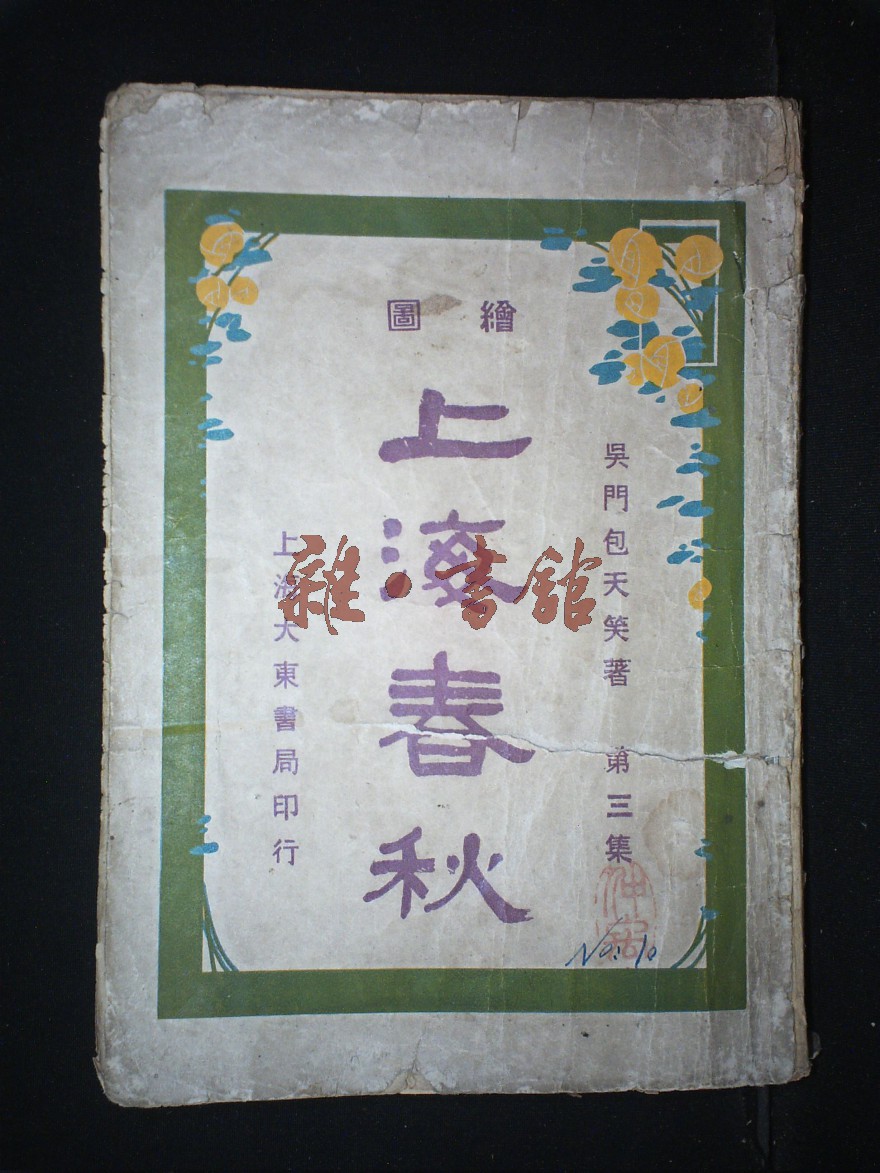 繪圖
吳門包天笑著 第三集
上海春秋
上海大東書局印行
雜·書館
No. 10